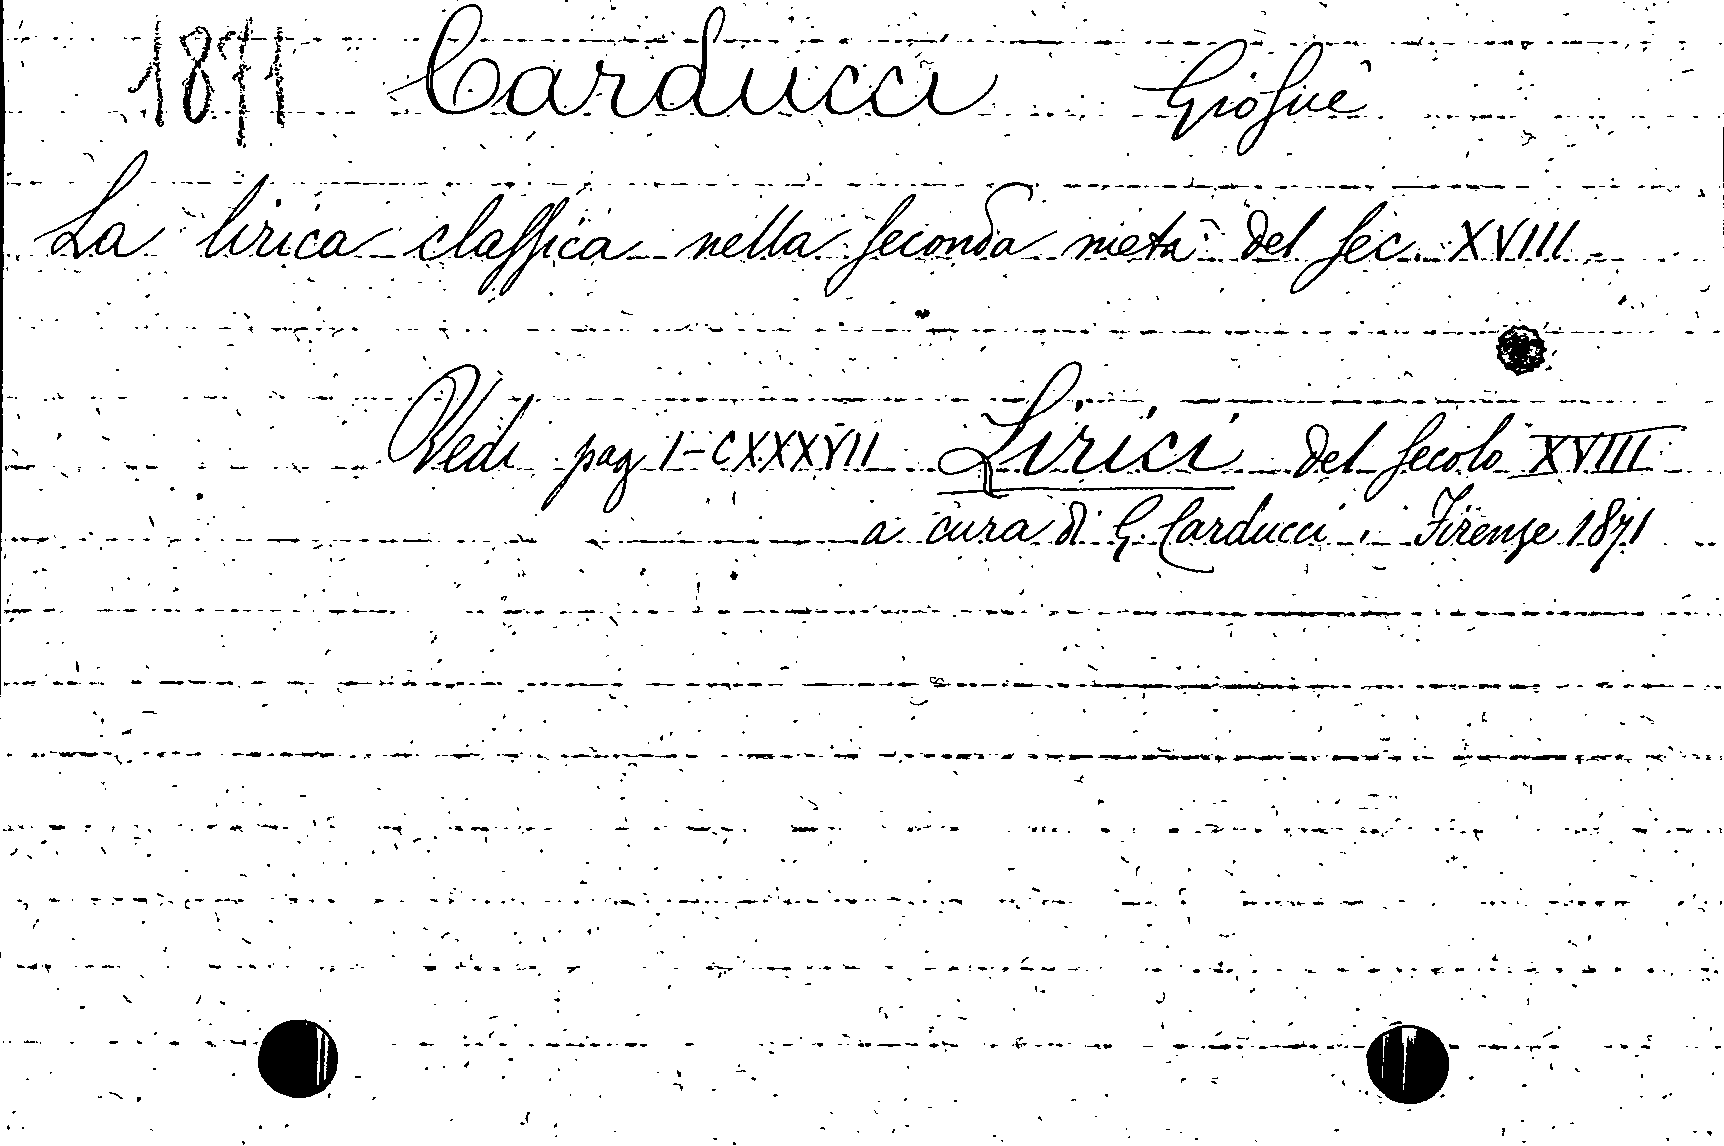 1871 Carducci Giosuè
La lirica classica nella seconda metà del sec. XVIII
Vedi pag I-CXXXVII Lirici del secolo XVIII
a cura di G. Carducci, Firenze 1871